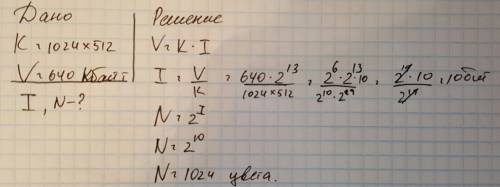 Дано
K = 1024×512
V = 640 Кбайт
I, N - ?
Решение
V = K · I
I = V/K = 640 · 2^13 / 1024×512 = 2^6 · 2^13 · 10 / 2^10 · 2^9 = 2^19 · 10 / 2^19 = 10 бит
N = 2^I
N = 2^10
N = 1024 цвета.